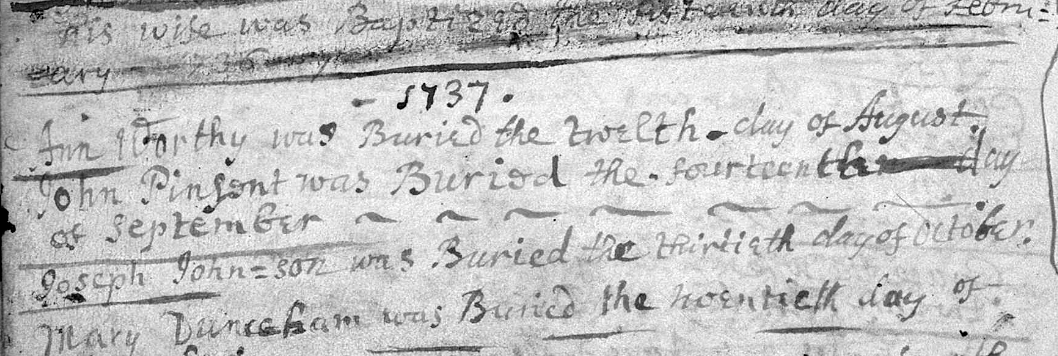 his wife was Baptized the day of Febru=
ary 1736
- 1737.
Ann Worthy was Buried the twelth. day of August.
John Pinsent was Buried the. fourteenth day
of September ~ ~ ~ ~ ~ ~ ~
Joseph John=son was Buried the thirtieth day of October.
Mary was Buried the twentieth day of